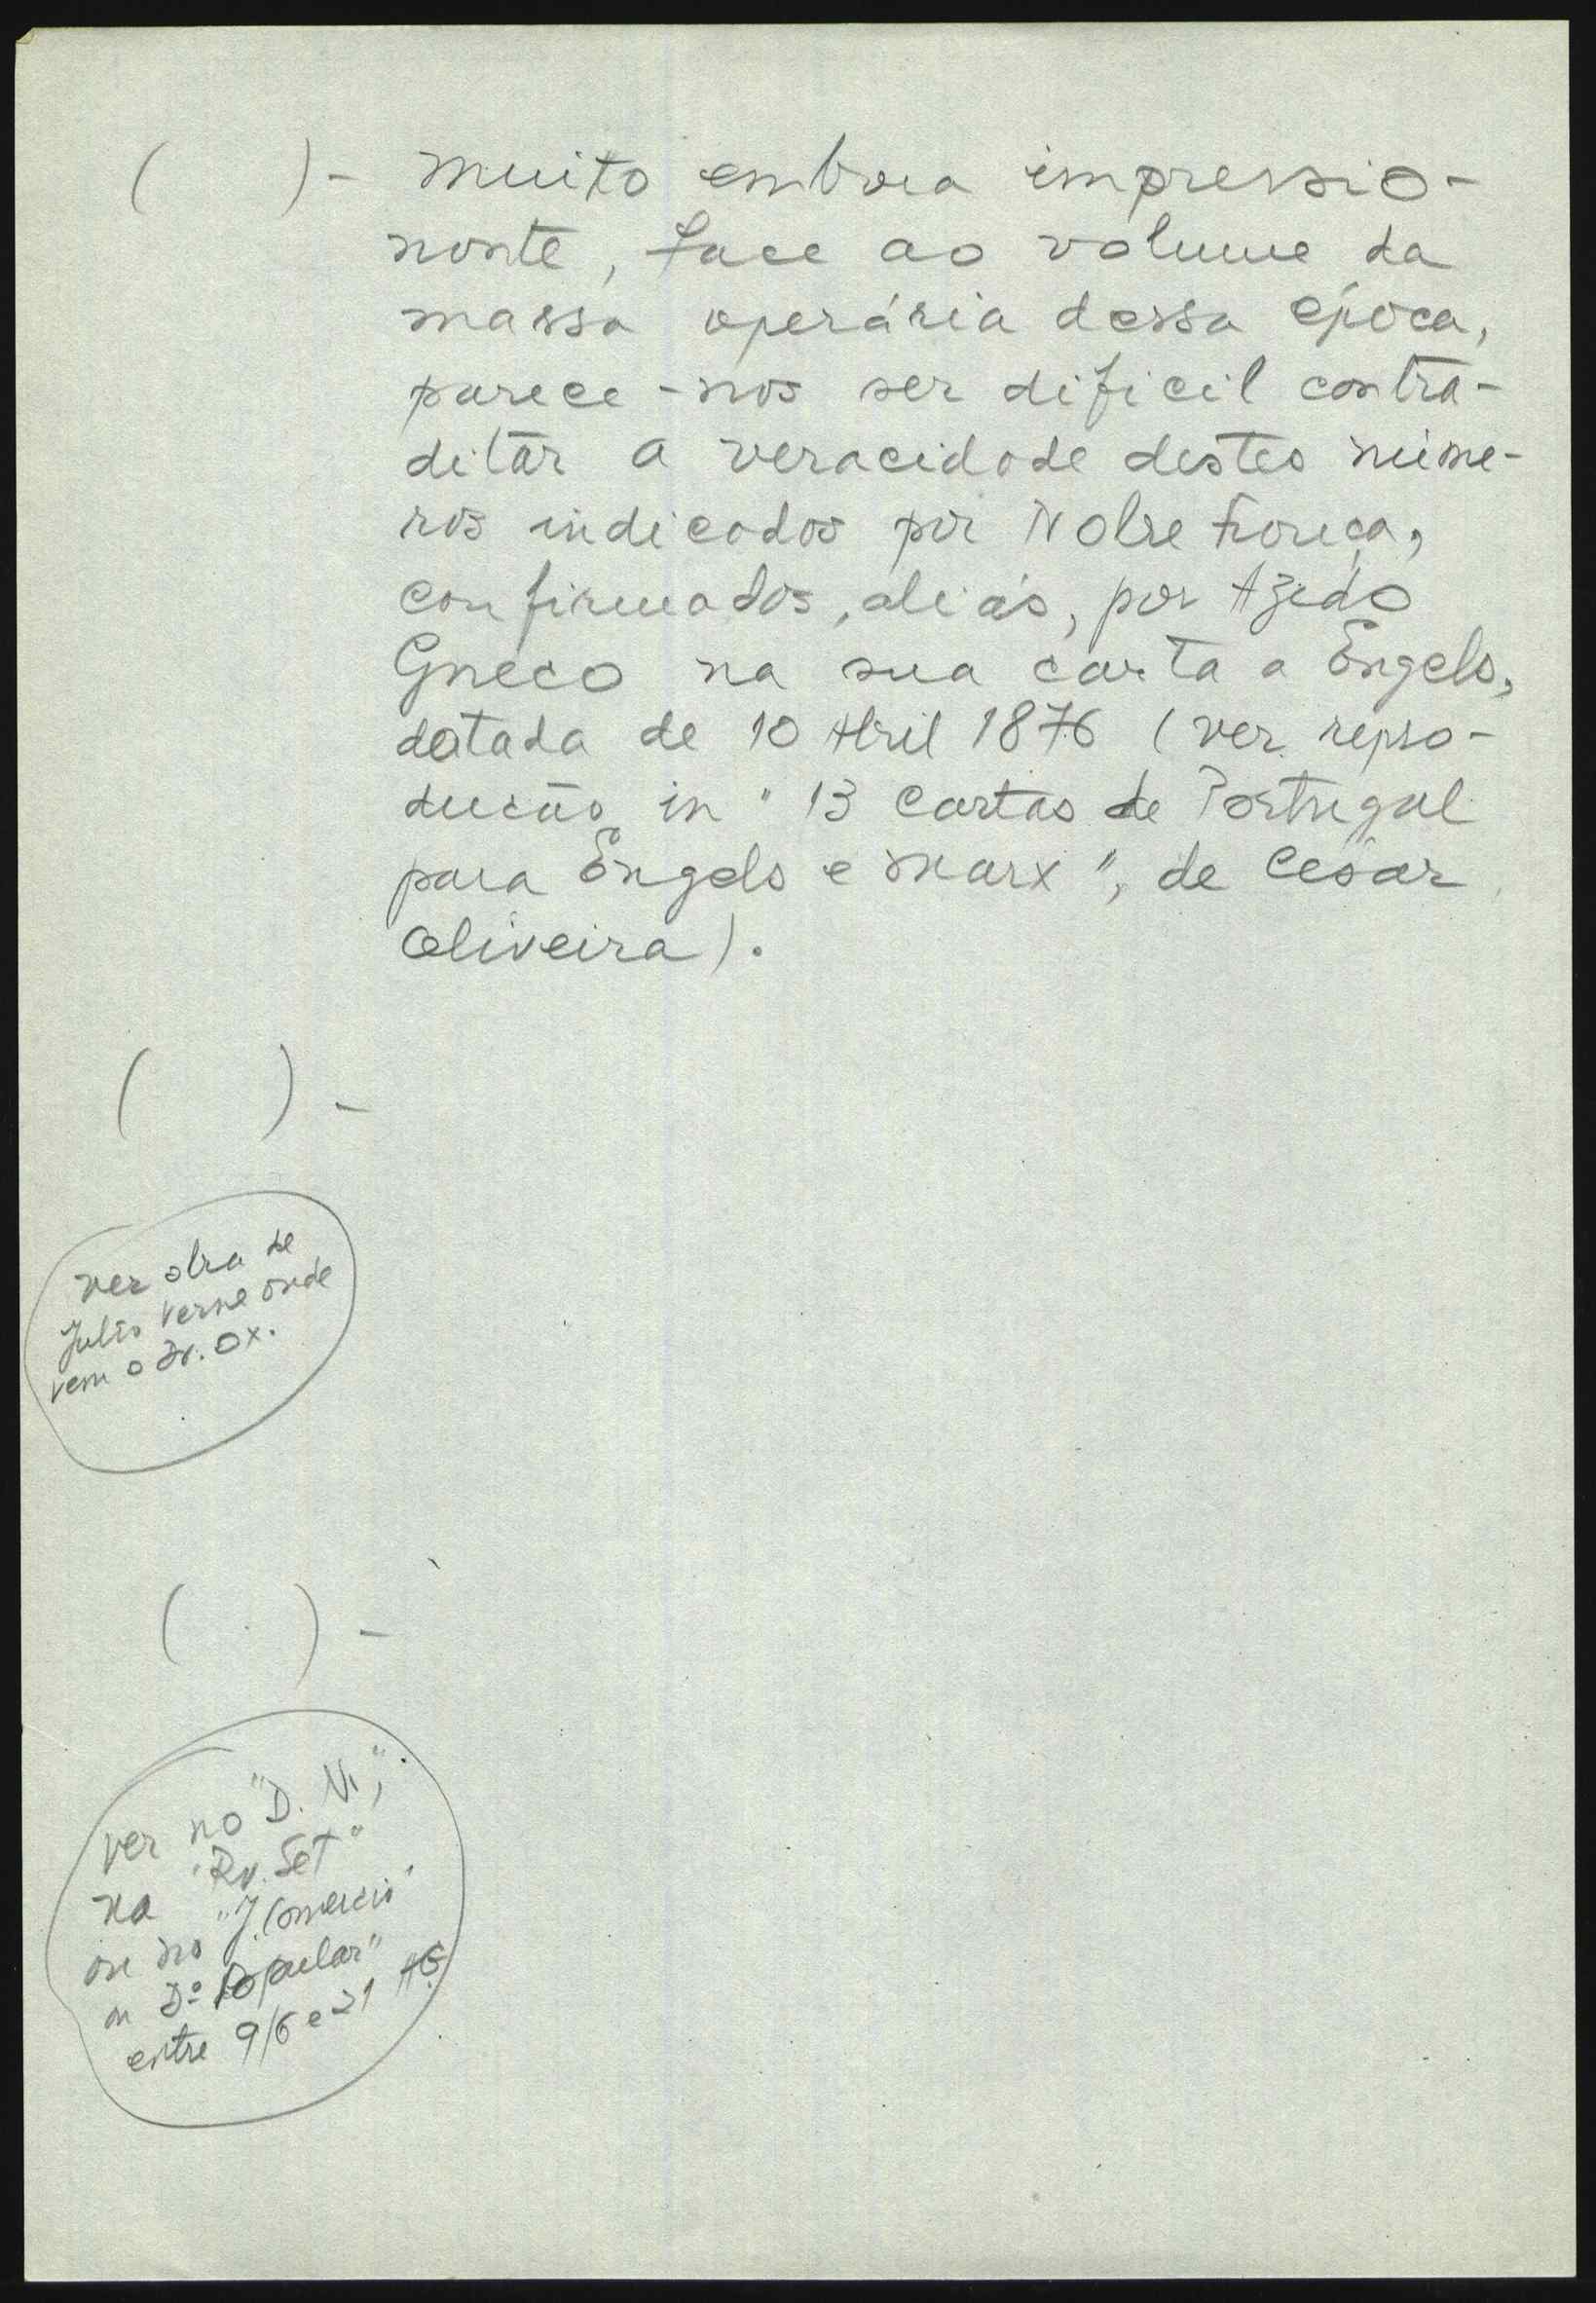 ( ) - Muito embora impressio-
nante, face ao volume da
massa operária dessa época,
parece-nos ser dificil contra-
ditar a veracidade destes núme-
ros indicados por Nobre França,
confirmados, aliás, por Azedo
Gneco na sua carta a Engels,
datada de 10 Abril 1876 (ver repro-
dução in "13 Cartas de Portugal
para Engels e Marx", de César
Oliveira).
( ) -
ver obra de
Julio Verne onde
vem o Dr. Ox.
( ) -
ver no "D. N.",
na "Rv. Set"
ou no "J. Comercio"
ou Dº Popular"
entre 9/6 e 21 AG